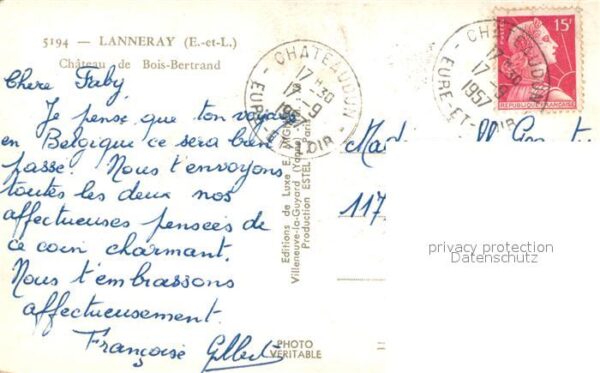 5194 — LANNERAY (E.-et-L.)
Château de Bois-Bertrand
Chere Faby,
Je pense que ton voyage
en Belgique ce sera bien
passé. Nous t'envoyons
toutes les deux nos
affectueuses pensées de
ce coin charmant.
Nous t'embrassons
affectueusement.
Françoise
Editions de Luxe E.
Villeneuve-la-Guyard (Yonne)
Production ESTEL
PHOTO
VERITABLE
CHATEAUDUN
17 H 30
17 - 9
1957
EURE-ET-LOIR
CHATEAUDUN
17 H 30
17 - 9
1957
EURE-ET-LOIR
15F
REPUBLIQUE FRANÇAISE
117
privacy protection
Datenschutz